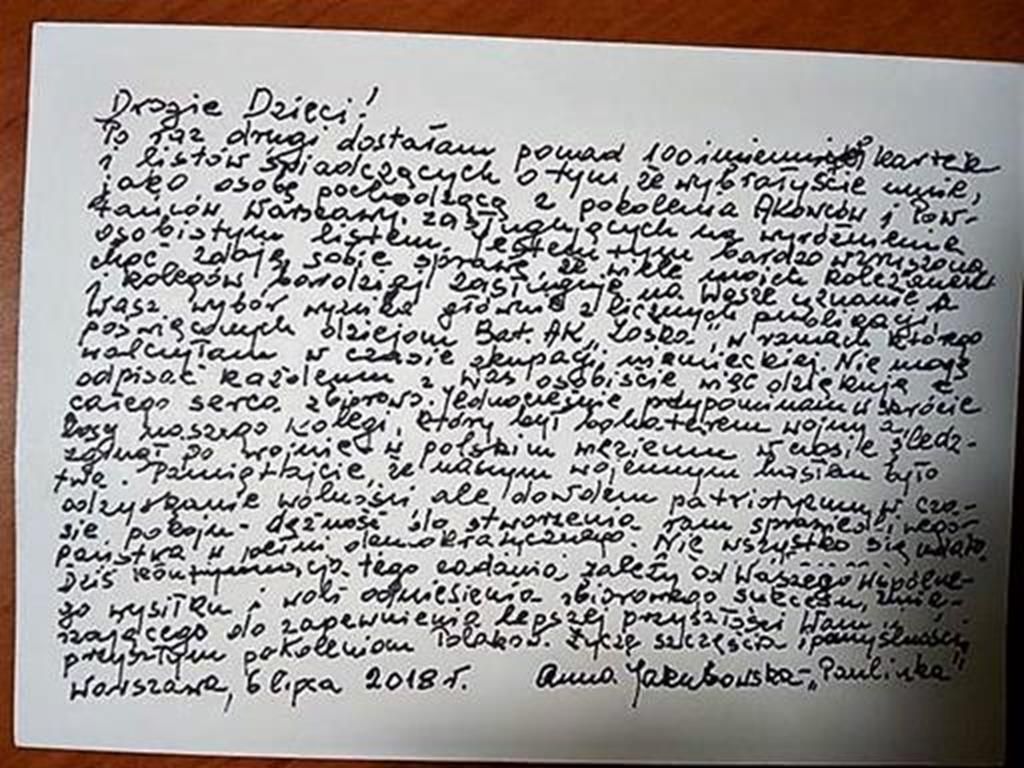 Drogie Dzieci!
Po raz drugi dostałam ponad 100 imiennych kartek
i listów świadczących o tym, że wybrałyście mnie,
jako osobę pochodzącą z pokolenia AKowców i Pow-
stańców Warszawy, zasługujących na wyróżnienie
osobistym listem. Jestem tym bardzo wzruszona,
choć zdaję sobie sprawę, że wiele moich koleżanek
i kolegów bardziej zasługuje na Wasze uznanie, a
Wasz wybór wynika głównie z licznych publikacji
poświęconych dziejom Bat. AK „Zośka", w ramach którego
walczyłam w czasie okupacji niemieckiej. Nie mogę
odpisać każdemu z Was osobiście więc dziękuję z
całego serca zbiorowo. Jednocześnie przypominam w skrócie
losy naszego kolegi, który był bohaterem wojny a
zginął po wojnie w polskim więzieniu w czasie śledz-
twa. Pamiętajcie, że naszym wojennym hasłem było
odzyskanie wolności, ale dowodem patriotyzmu w cza-
sie pokoju - dążność do stworzenia ram sprawiedliwego
państwa w pełni demokratycznego. Nie wszystko się udało.
Dziś kontynuacja tego zadania zależy od Waszego wspólne-
go wysiłku i woli odniesienia zbiorowego sukcesu, zmie-
rzającego do zapewnienia lepszej przyszłości Wam i
przyszłym pokoleniom Polaków. Życzę szczęścia i pomyślności,
Warszawa, 6 lipca 2018 r. Anna Jakubowska - „Paulinka"